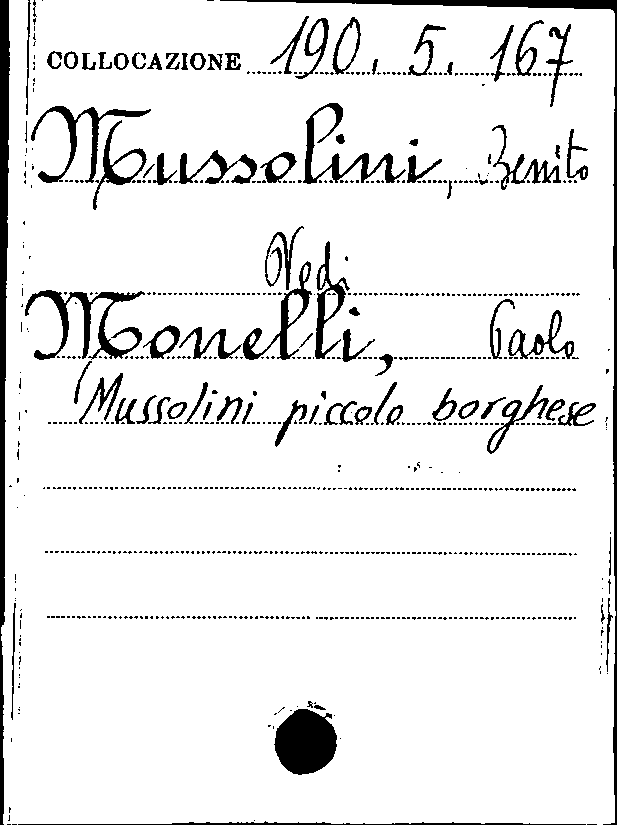 COLLOCAZIONE 190. 5. 167
Mussolini, Benito
Vedi
Monelli, Paolo
Mussolini piccolo borghese